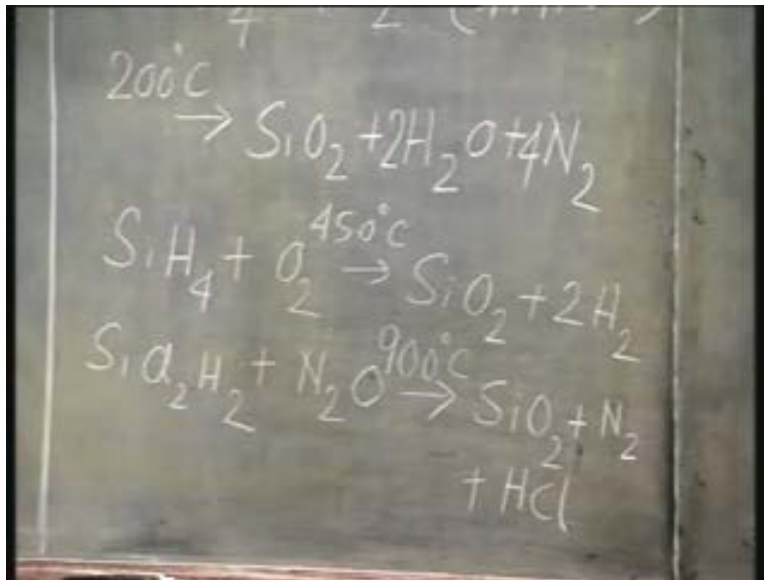 200°C
→ SiO₂ + 2H₂O + 4N₂
SiH₄ + O₂ 450°C → SiO₂ + 2H₂
SiCl₂H₂ + N₂O 900°C → SiO₂ + N₂
+ HCl